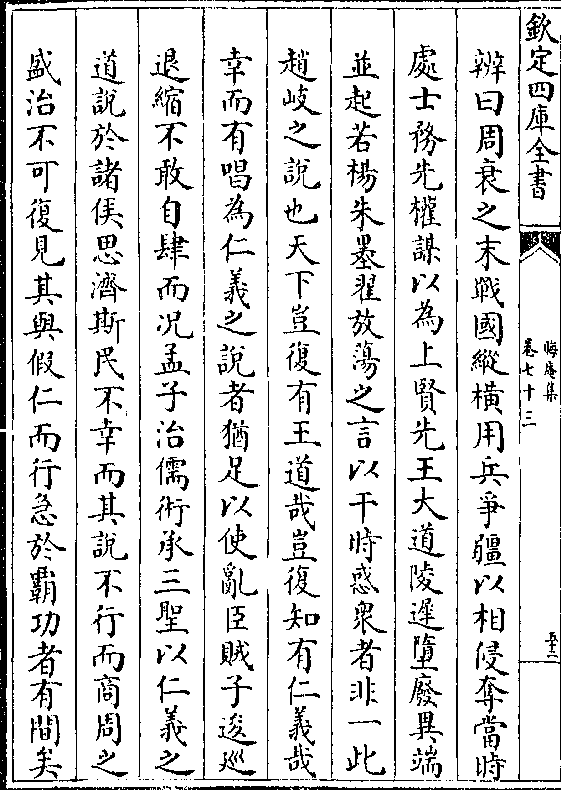 欽定四庫全書
晦庵集
卷七十三
五十二
辨曰周衰之末戰國縱橫用兵爭疆以相侵奪當時
處士務先權謀以為上賢先王大道陵遲墮廢異端
並起若楊朱墨翟放蕩之言以干時惑衆者非一此
趙岐之說也天下豈復有王道哉豈復知有仁義哉
幸而有唱為仁義之說者猶足以使亂臣賊子逡巡
退縮不敢自肆而况孟子治儒術承三聖以仁義之
道說於諸侯思濟斯民不幸而其說不行而商周之
盛治不可復見其與假仁而行急於霸功者有間矣